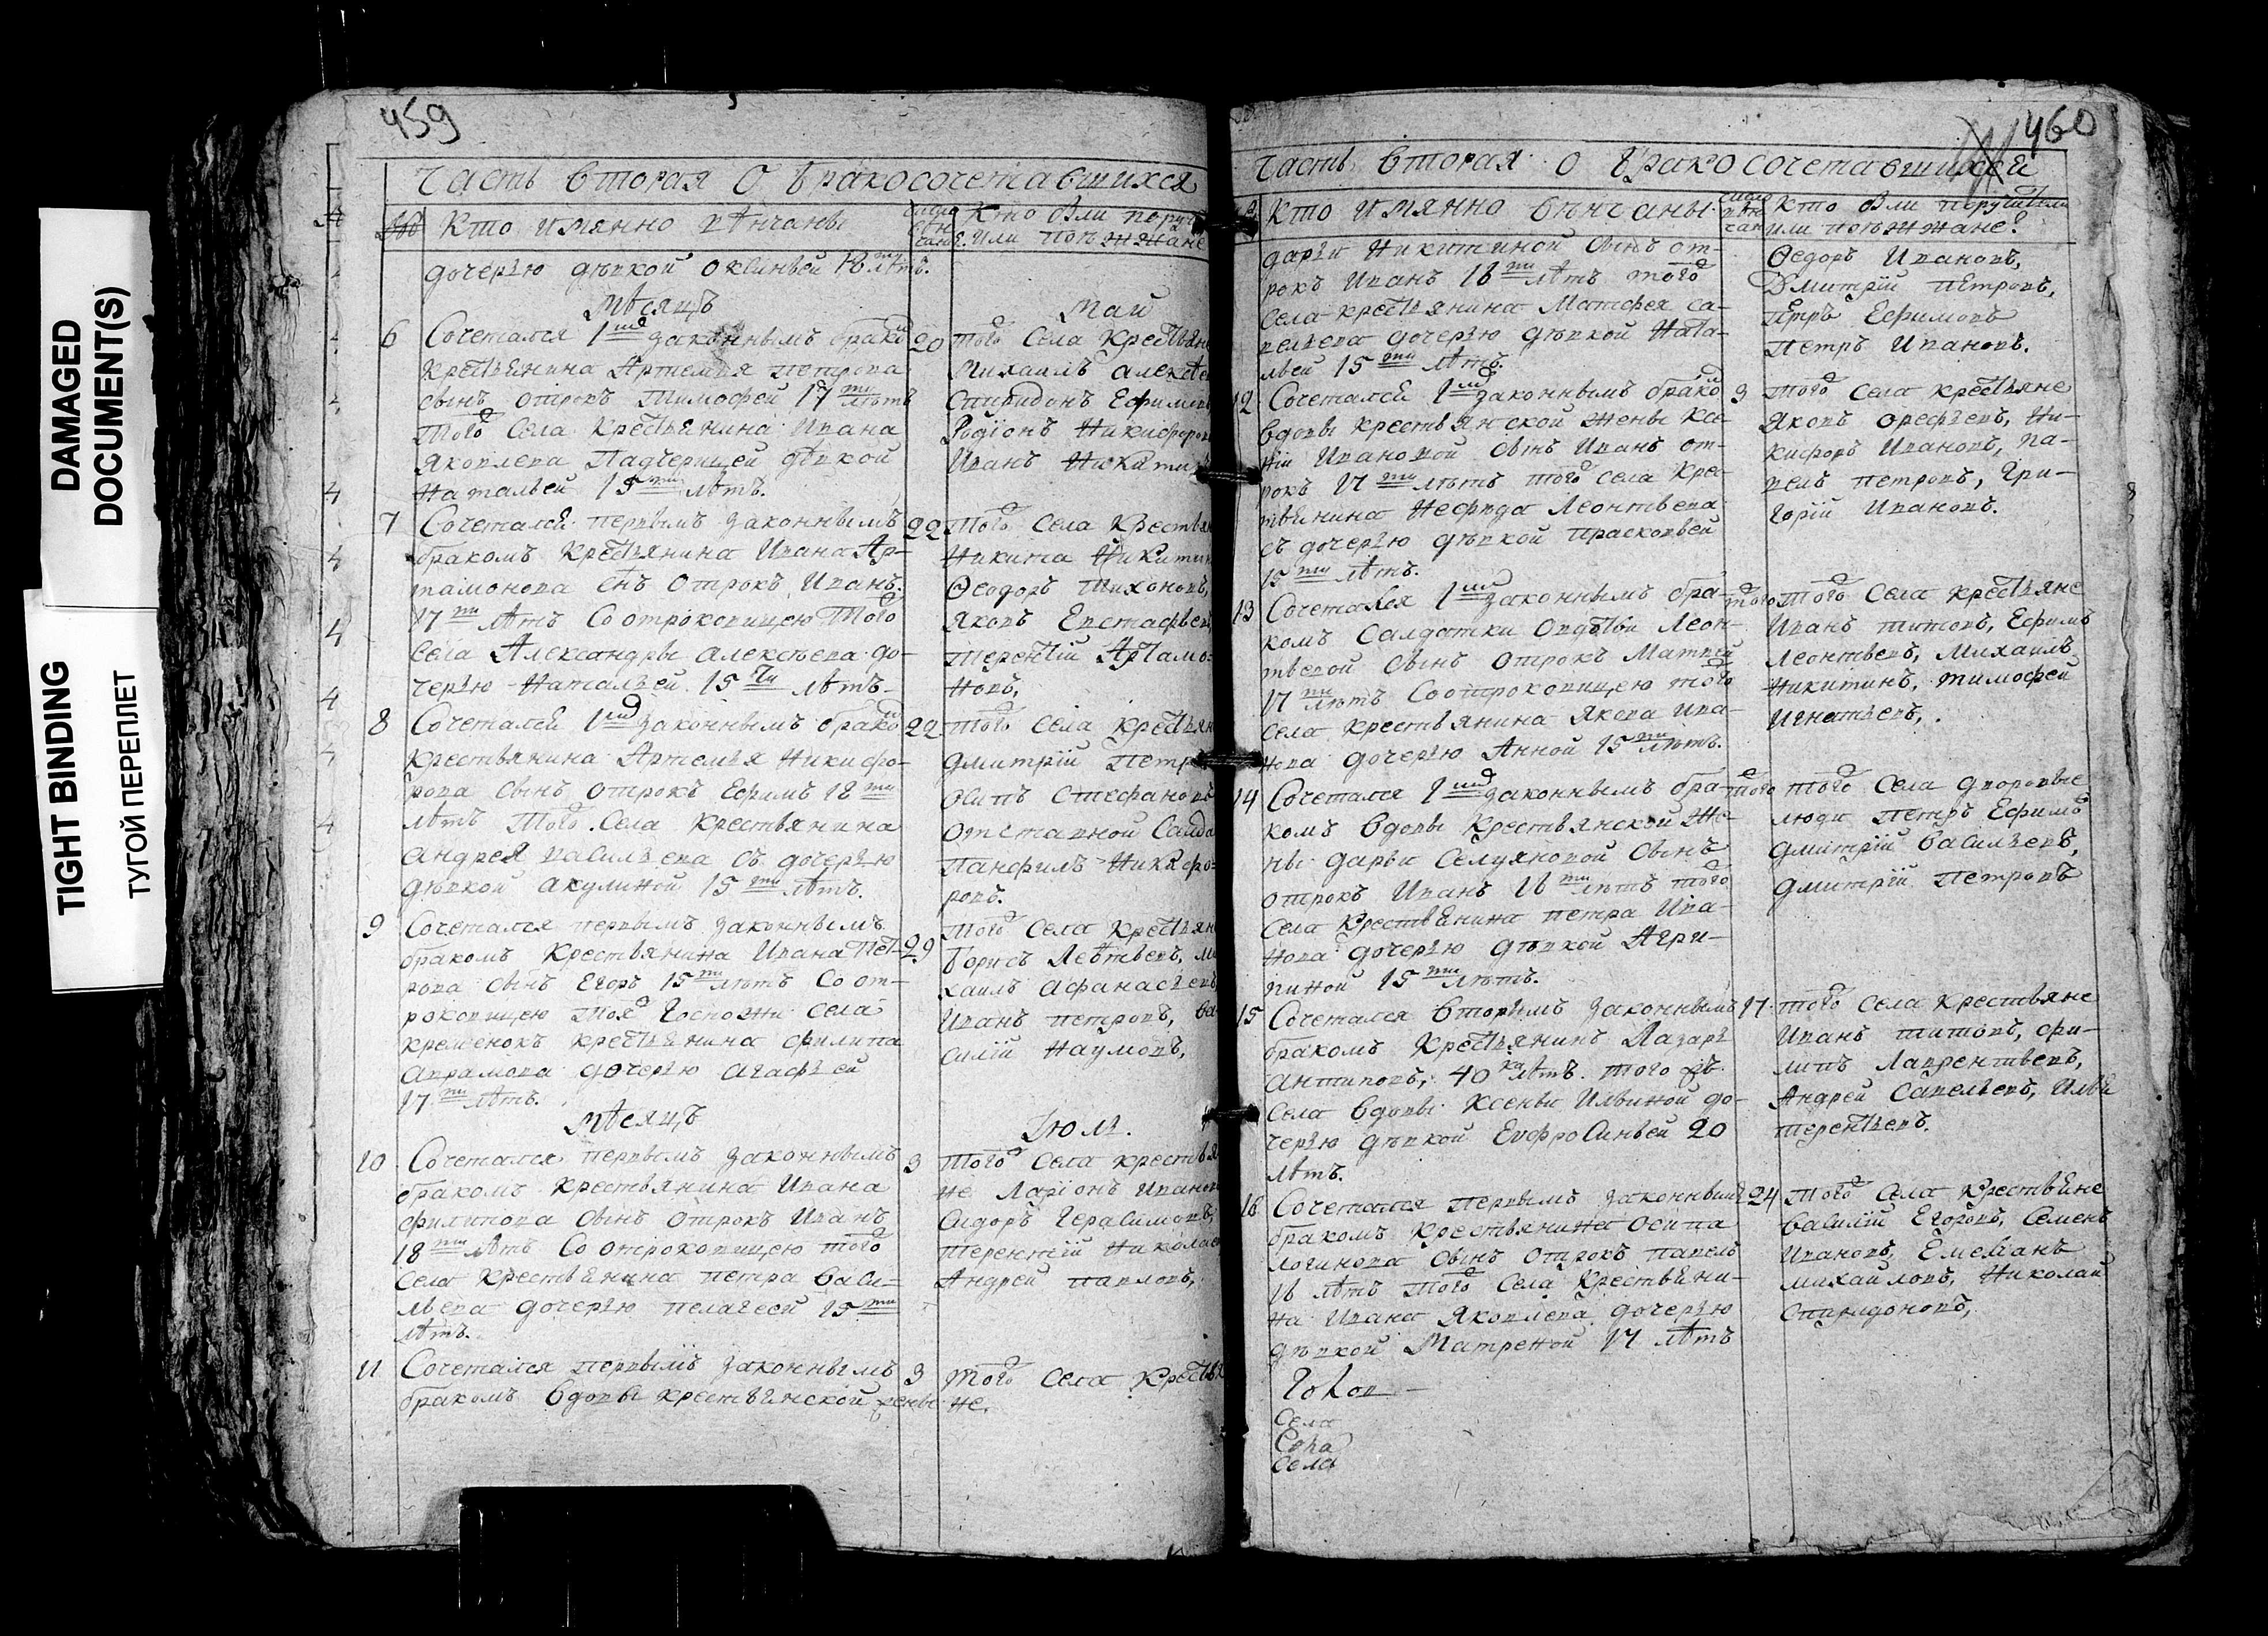 DAMAGED
DOCUMENT(S)
TIGHT BINDING
ТУГОЙ ПЕРЕПЛЕТ
459
Часть вторая О бракосочетавшихся
Кто имянно вѣнчаны
Кто были поруч
или поѣзжане
дочерью дѣвкой Оксиньей 18 ти лѣтъ.
мѣсяцъ
Май
6 Сочетался 1 мъ законнымъ брако 20
крестьянина Артемья петрова
сынъ отрокъ Тимофей 17 ти лѣтъ
того Села Крестьянина Ивана
Яковлева Падчерицей дѣвкой
Натальей 15 ти лѣтъ.
того Села Крестьян
Михаилъ алексѣе
Спиридонъ Ефимов
Родіонъ Никифоров
Иванъ Никитин
7 Сочетался первымъ законнымъ 22
бракомъ Крестьянина Ивана Ар-
тамонова снъ Отрокъ Иванъ
17 ти лѣтъ Со отроковицею Того
Села Александры алексѣева до-
черью Натальей 15 ти лѣтъ
того Села Крестьян
Никита Никитин
Ѳеодоръ Тихоновъ,
Яковъ Евстафьев
терентій Артамо-
новъ,
8 Сочетался 1 мъ законнымъ брако 22
Крестьянина Артемья Никифо-
рова сынъ отрокъ Ефимъ 18 ти
лѣтъ того Села Крестьянина
Андрея васильева съ дочерью
дѣвкой акулиной 15 ти лѣтъ.
того Села Крестьян
Дмитрій Петр
Осипъ Стефановъ
отставной Салда
Панфилъ Никифо-
ровъ.
9 Сочетался первымъ законнымъ
бракомъ Крестьянина Ивана Пет- 29
рова сынъ Егоръ 15 ти лѣтъ Со от-
роковицею тоя Госпожи села
кременокъ крестьянина филипа
аврамова дочерью агафьей
17 ти лѣтъ.
того Села Крестьян
Борисъ Леѡтьевъ, ми
хаилъ афанасьевъ
Иванъ петровъ, ва
силій Наумовъ,
мѣсяцъ
Іюль.
10 Сочетался первымъ законнымъ 3
бракомъ крестьянина Ивана
филипова сынъ отрокъ Иванъ
18 ти лѣтъ Со отроковицею того
села Крестьянина петра васи-
льева дочерью пелагеей 15 ти
лѣтъ.
того Села крестья
не Ларіонъ Иванов
Сидоръ Герасимовъ,
терентій Николае
Андрей павловъ,
11 Сочетался первымъ законнымъ 3
бракомъ вдовы крестьянской жены
того Села Кресть
не.
460
Часть вторая о бракосочетавшихся
Кто имянно вѣнчаны
Кто были поручители
или поѣзжане?
дарьи Никитиной сынъ от-
рокъ Иванъ 18 ти лѣтъ того
Села крестьянина Матфея са-
вельева дочерью дѣвкой Ната-
льей 15 ти лѣтъ.
Ѳедоръ Ивановъ,
Дмитрій пѣтровъ,
петръ Ефимовъ
Петръ Ивановъ.
12 Сочетался 1 мъ законнымъ брако 3
вдовы крестьянской жены Ксе-
ніи Ивановой снъ Иванъ от-
рокъ 17 ти лѣтъ того села Кре-
тьянина Нефида Леонтьева
съ дочерью дѣвкой Прасковьей
15 ти лѣтъ.
того Села крестьяне
Яковъ орефьевъ, Ни-
кифоръ Ивановъ, па-
велъ петровъ, Гри-
горій Ивановъ.
13 Сочетался 1 мъ законнымъ бра- того
комъ Салдатки Овдотьи Леон-
тьевой сынъ отрокъ Матвей
17 ти лѣтъ Со отроковицею того
села крестьянина Якова ива-
нова дочерью Анной 15 ти лѣтъ.
того Села крестьяне
Иванъ титовъ, Ефимъ
Леонтьевъ, Михаилъ
Никитинъ, тимофей
Игнатьевъ,
14 Сочетался 1 мъ законнымъ бра- того
комъ вдовы Крестьянской Же-
ны дарьи Селуяновой сынъ
отрокъ Иванъ 16 ти лѣтъ того
Села Крестьянина петра Ива-
нова дочерью дѣвкой Агри-
пиной 15 ти лѣтъ.
того Села дворовые
люди петръ Ефимъ
дмитрій васильевъ,
дмитрій петровъ
15 Сочетался вторымъ законнымъ 17
бракомъ Крестьянинъ Лазарь
антиповъ, 40 ка лѣтъ. того жъ
Села вдовы Ксеньи Ильиной до-
черью дѣвкой Еvфросиньей 20
лѣтъ.
того Села Крестьяне
Иванъ титовъ, фи-
липъ лаврентьевъ,
Андрей Савельевъ, Илья
терентьевъ.
16 Сочетался первымъ законнымъ 24
бракомъ Крестьянина осипа
логинова сынъ отрокъ павелъ
16 лѣтъ того Села Крестьяни-
на Ивана Яковлева дочерью
дѣвкой Матреной 17 лѣтъ
того Села Крестьяне
василій Егоровъ, Семенъ
Ивановъ, Емельянъ
михайловъ, Николай
Спиридоновъ,
Села
Села